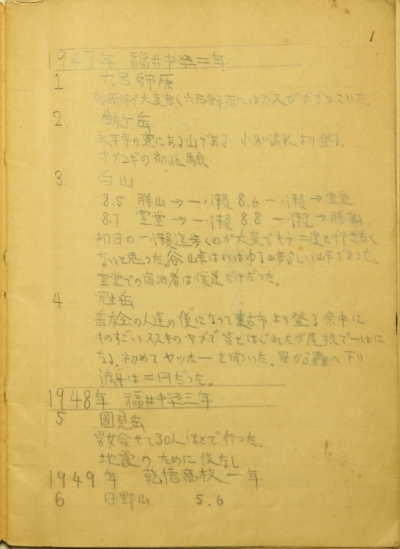 1
1947年 福井中学二年
1 六呂師原
大変 六呂師原 ガスがかかっていた。
2 剣ヶ岳
永平寺の裏にある山である 清水より登る。
ヤブコギの初経験
3 白山
8.5 勝山→一ノ瀬 8.6 一ノ瀬→室堂
8.7 室堂→一ノ瀬 8.8 一ノ瀬→勝山
初日の一ノ瀬迄歩くのが大変でもう二度と行きたく
ないと思った。 山 いわゆる山 らしい山であった。
室堂での宿泊者は僕達だけだった。
4 冠岳
人達の後になって 市より登る 途中に
ものすごいススキのヤブで皆とはぐれたが尾根で一しょに
なる。初めてヤッホーを聞いた。 から へ下り
は二円だった。
1948年 福井中学三年
5 国見岳
男女合せて30人ほどで行った。
地震のために後なし
1949年 乾徳高校一年
6 日野山 5.6